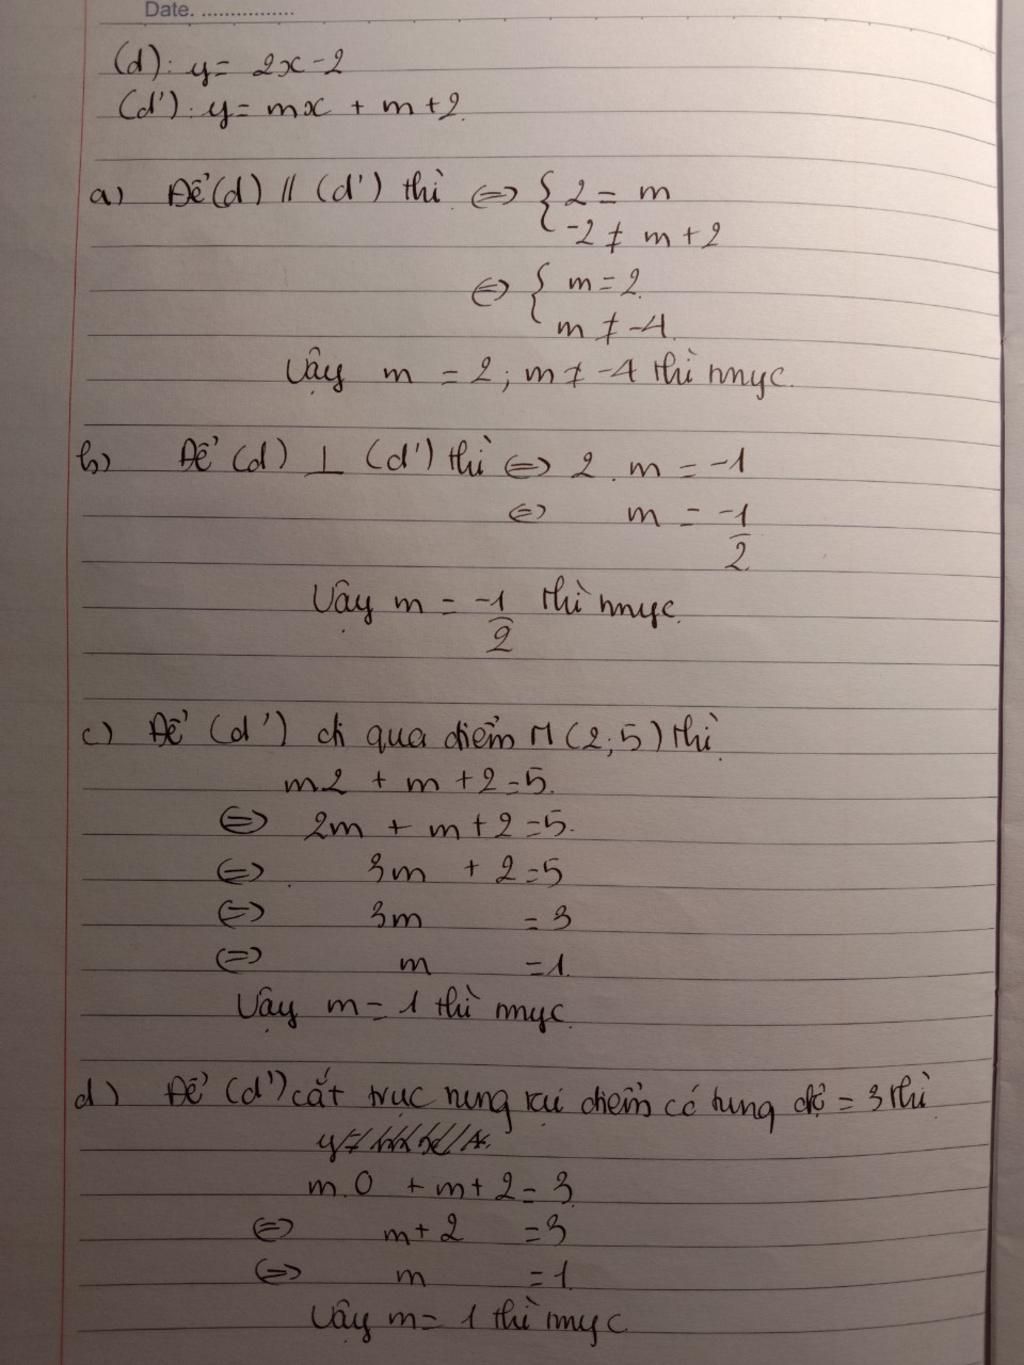 Date. ................
(d): y = 2x - 2
(d'): y = mx + m + 2.
a) Để (d) // (d') thì ⇔ { 2 = m
-2 ≠ m + 2
⇔ { m = 2.
m ≠ -4.
Vậy m = 2; m ≠ -4 thì mnyc.
b) Để (d) ⊥ (d') thì ⇔ 2. m = -1
⇔ m = -1/2
Vậy m = -1/2 thì mnyc.
c) Để (d') đi qua điểm M (2; 5) thì
m2 + m + 2 = 5.
⇔ 2m + m + 2 = 5.
⇔ 3m + 2 = 5
⇔ 3m = 3
⇔ m = 1.
Vậy m = 1 thì mnyc.
d) Để (d') cắt trục tung tại điểm có tung độ = 3 thì
m.0 + m + 2 = 3.
⇔ m + 2 = 3
⇔ m = 1.
Vậy m = 1 thì mnyc